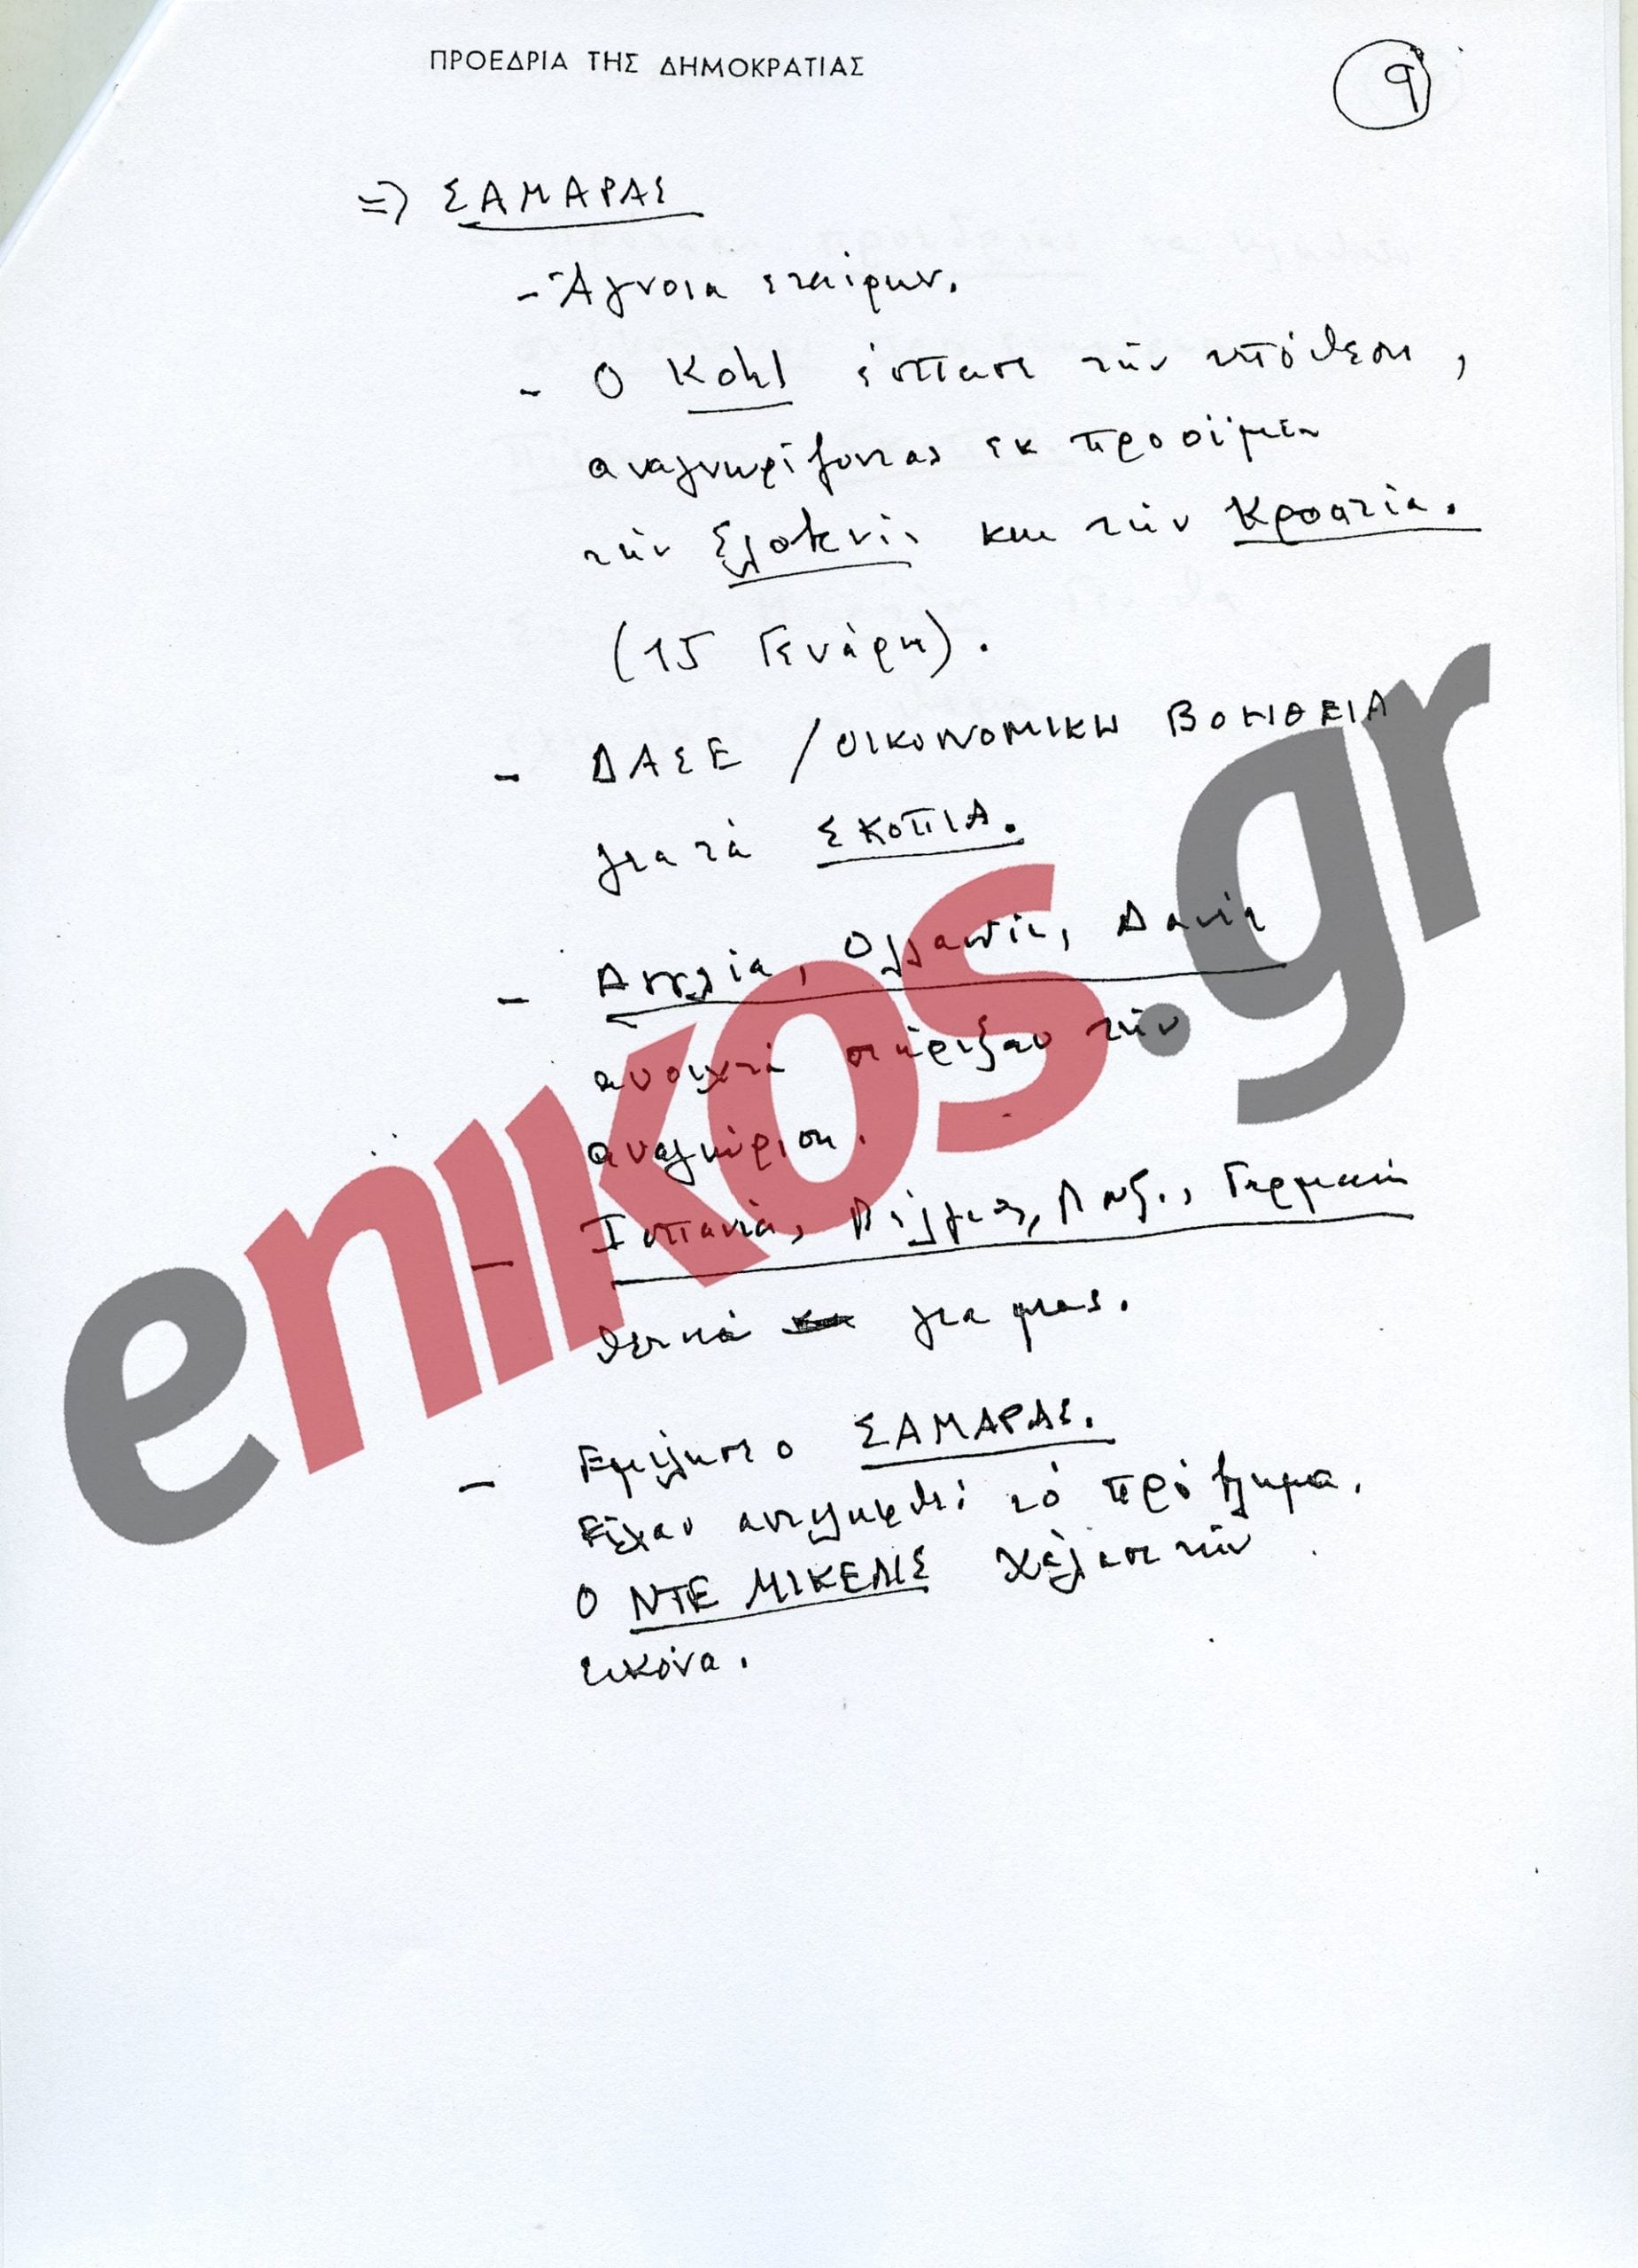 ΠΡΟΕΔΡΙΑ ΤΗΣ ΔΗΜΟΚΡΑΤΙΑΣ
9
=> ΣΑΜΑΡΑΣ
- Άγνοια εταίρων.
- Ο Kohl έσπασε τήν υπόθεση,
αναγνωρίζοντας εκ προοιμίου
τήν Σλοβενία και τήν Κροατία.
(15 Γενάρη).
- ΔΑΣΕ / ΟΙΚΟΝΟΜΙΚΗ ΒΟΗΘΕΙΑ
για τά ΣΚΟΠΙΑ.
- Αγγλία, Ολλανδία, Δανία
ανοιχτά στήριξαν τήν
αναγνώριση.
- Ισπανία, Βέλγιο, Λουξ., Γερμανία
θετικά για μας.
- Εμίλησε ο ΣΑΜΑΡΑΣ.
Είχαν αντιληφθεί τό πρόβλημα.
Ο ΝΤΕ ΜΙΚΕΛΙΣ χάλασε τήν
εικόνα.
enikos.gr